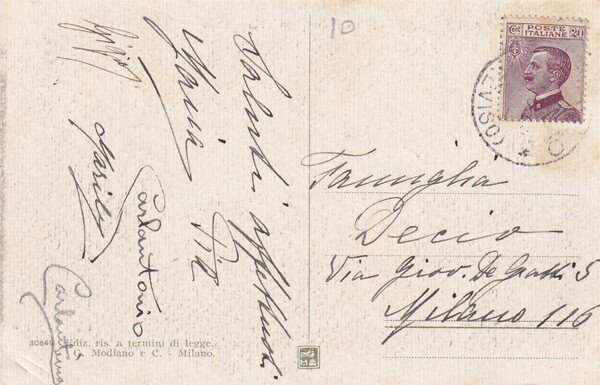 10
Cent. POSTE 20
ITALIANE
Saluti affettuosi
Maria Pia
Gigi
Carlantonio
Famiglia
Decio
Via Giov. De Grassi 5
Milano 116
30849 Ediz. ris. a termini di legge.
Modiano e C. - Milano.